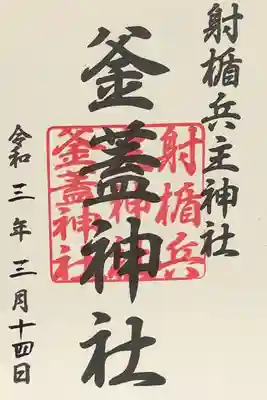 射楯兵主神社
釜蓋神社
射楯兵
主神社
釜蓋神社
令和三年三月十四日